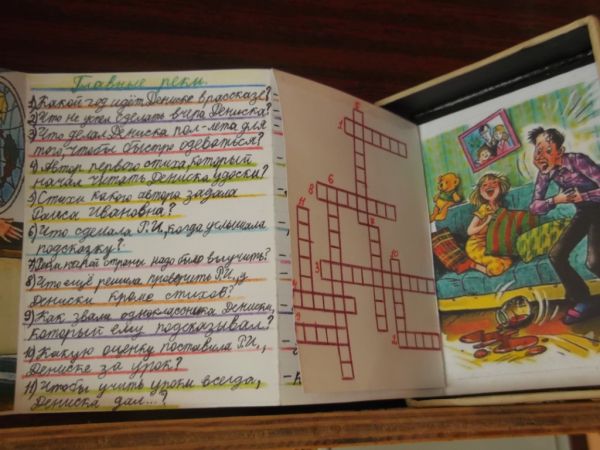 Главные реки.
1) Какой год идёт Дениске в рассказе?
2) Что не успел сделать вчера Дениска?
3) Что делал Дениска пол-лета для
того, чтобы быстро одеваться?
4) Автор первого стиха, который
начал читать Дениска у доски?
5) Стихи какого автора задала
Раиса Ивановна?
6) Что сделала Р.И., когда услышала
подсказку?
7) Реки какой страны надо было выучить?
8) Что ещё решила проверить Р.И. у
Дениски кроме стихов?
9) Как звали одноклассника Дениски,
который ему подсказывал?
10) Какую оценку поставила Р.И.,
Дениске за урок?
11) Чтобы учить уроки всегда,
Дениска дал...?
5
1
6
8
11
7
10
3
4
2
9